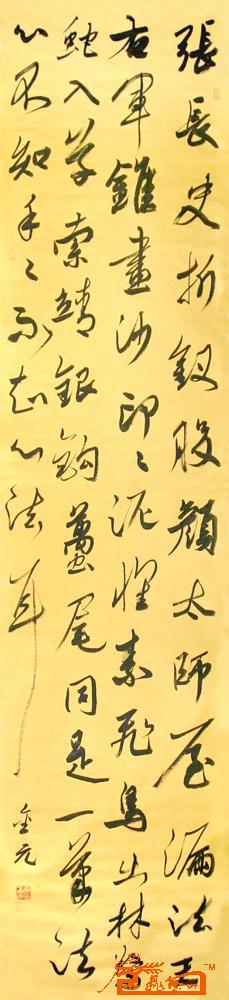 張長史折釵股顏太師屋漏法王
右軍錐畫沙印〻泥懷素飛鳥出林驚
蛇入草索靖銀鉤蠆尾同是一筆法
心不知手〻不知心法耳
金元